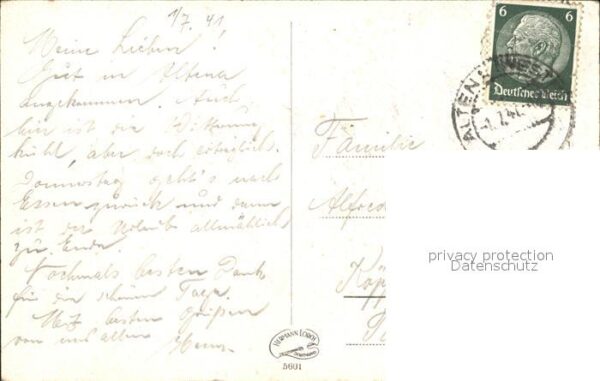 1/7. 41
Meine Lieben!
Gut in Altena
angekommen. Auch
hier ist die Witterung
kühl, aber doch erträglich.
Donnerstag geht's nach
Essen zurück und dann
ist der Urlaub allmählich
zu Ende.
Nochmals besten Dank
für die schönen Tage.
Mit besten Grüßen
von uns allen
6 6
Deutsches Reich
ALTENA (WESTF
-1.7.41
Familie
Alfred
Köp
privacy protection
Datenschutz
HERMANN LORCH
DORTMUND
5601